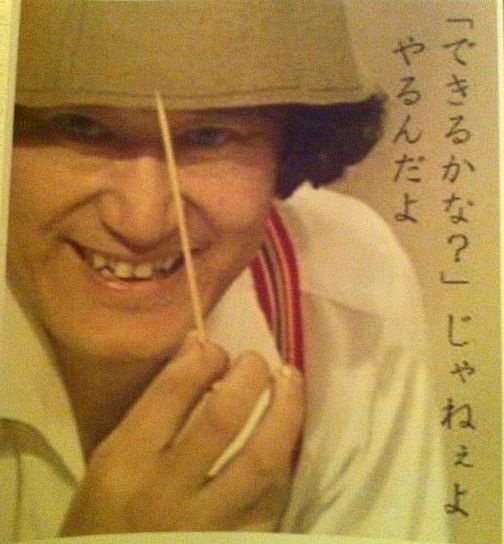 「できるかな？」じゃねぇよ
やるんだよ